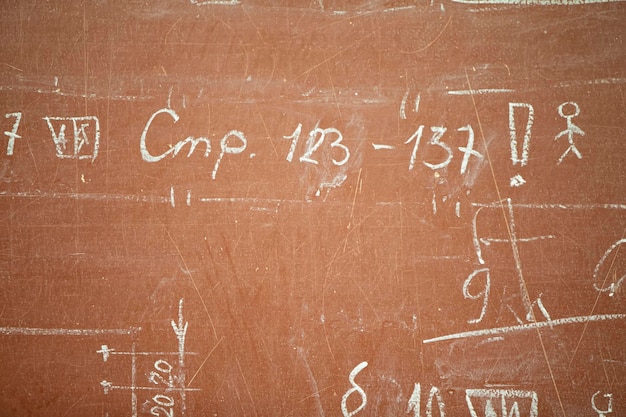 7 Стр. 123 - 137 !
9
20 20
δ 10